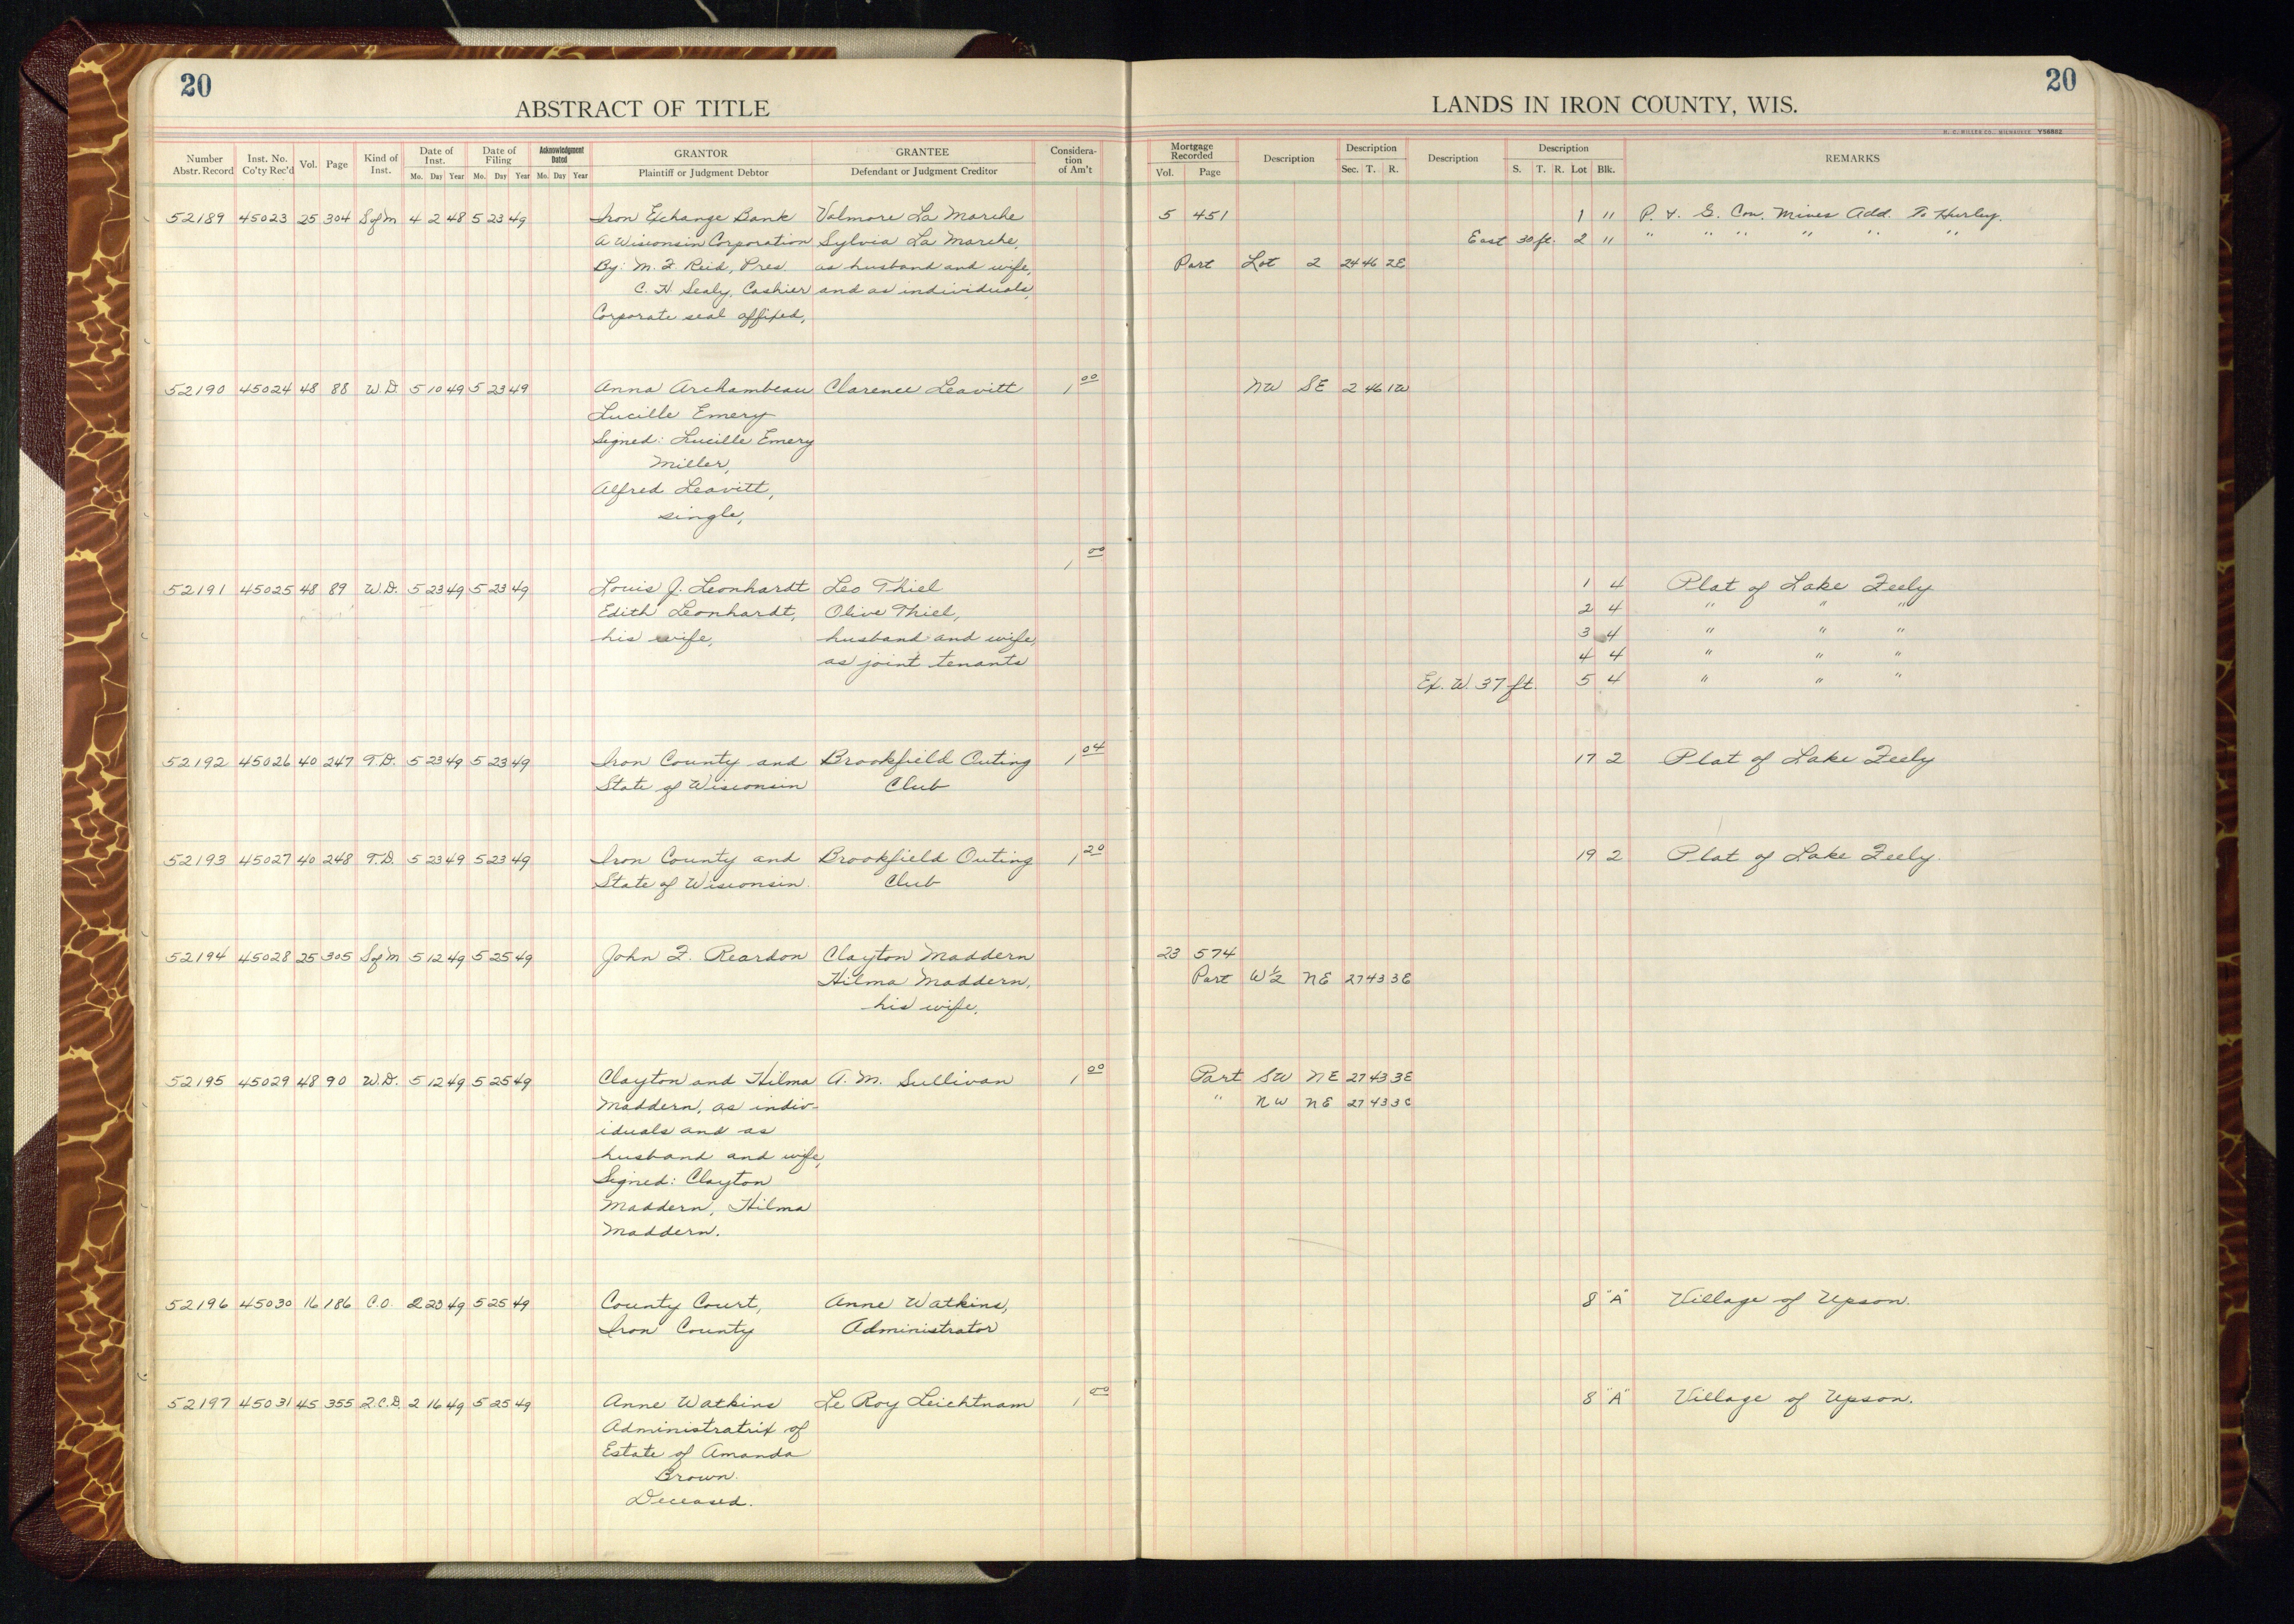 20
ABSTRACT OF TITLE
LANDS IN IRON COUNTY, WIS.
20
H. C. MILLER CO., MILWAUKEE
Number Abstr. Record | Inst. No. Co'ty Rec'd | Vol. | Page | Kind of Inst. | Date of Inst. Mo. Day Year | Date of Filing Mo. Day Year | Acknowledgment Dated Mo. Day Year | GRANTOR Plaintiff or Judgment Debtor | GRANTEE Defendant or Judgment Creditor | Consideration of Am't | Mortgage Recorded Vol. Page | Description | Description Sec. T. R. | Description | Description S. T. R. Lot Blk. | REMARKS
52189 45023 25 304 S of M 4 2 48 5 23 49 Iron Exchange Bank Valmore La Marche 5 451 1 11 P. & G. Con. Mines Add. To Hurley.
A Wisconsin Corporation Sylvia La Marche, East 30 ft. 2 11 " " " " " "
By: M. J. Reid, Pres. as husband and wife, Part Lot 2 24 46 2E
C. H Sealy, Cashier and as individuals,
Corporate seal affixed,
52190 45024 48 88 W.D. 5 10 49 5 23 49 Anna Archambeau Clarence Leavitt 1 00 NW SE 2 46 1W
Lucille Emery
Signed: Lucille Emery
Miller,
Alfred Leavitt,
single,
1 00
52191 45025 48 89 W.D. 5 23 49 5 23 49 Louis J. Leonhardt Leo Thiel 1 4 Plat of Lake Feely
Edith Leonhardt, Olive Thiel, 2 4 " " "
his wife, husband and wife, 3 4 " " "
as joint tenants 4 4 " " "
Ex. W. 37 ft. 5 4 " " "
52192 45026 40 247 T.D. 5 23 49 5 23 49 Iron County and Brookfield Outing 1 04 17 2 Plat of Lake Feely
State of Wisconsin Club
52193 45027 40 248 T.D. 5 23 49 5 23 49 Iron County and Brookfield Outing 1 20 19 2 Plat of Lake Feely.
State of Wisconsin. Club
52194 45028 25 305 S of M 5 12 49 5 25 49 John F. Reardon Clayton Maddern 23 574
Hilma Maddern, Part W½ NE 27 43 3E
his wife,
52195 45029 48 90 W.D. 5 12 49 5 25 49 Clayton and Hilma A. M. Sullivan 1 00 Part SW NE 27 43 3E
Maddern, as indiv- " NW NE 27 43 3E
iduals and as
husband and wife,
Signed: Clayton
Maddern, Hilma
Maddern.
52196 45030 16 186 C.O. 2 23 49 5 25 49 County Court, Anne Watkins, 8 "A" Village of Upson.
Iron County Administrator
52197 45031 45 355 Q.C.D. 2 16 49 5 25 49 Anne Watkins Le Roy Leichtnam 1 00 8 "A" Village of Upson.
Administratrix of
Estate of Amanda
Brown.
Deceased.